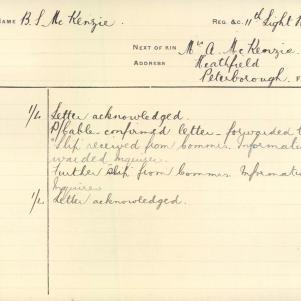 NAME B.S. McKenzie. REG. &C. 11th Light H
NEXT OF KIN Mrs A. McKenzie
ADDRESS Heathfield
Peterborough F
1/6 Letter acknowledged.
P/Cable - confirmed letter - forwarded t
"Slip received from Commn. Informatio
warded Inquirer.
Further Slip from Commn. Informatio
Inquirer
1/6 Letter acknowledged.